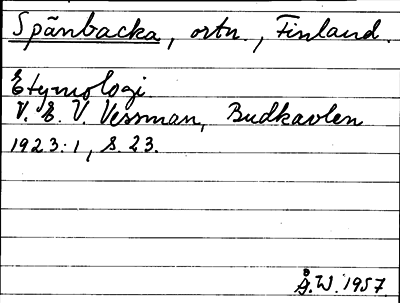 Spånbacka, ortn., Finland.
Etymologi
V. E. V. Wessman, Budkavlen
1923:1, s. 23.
Å.W. 1957